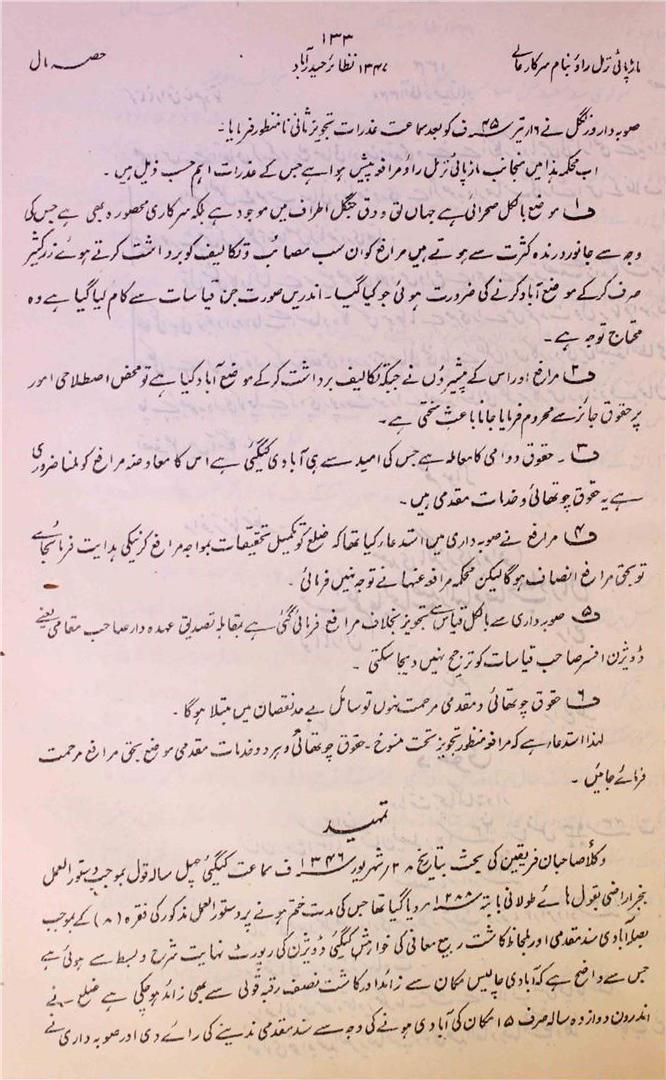 ۱۳۳
ماڑپائی نرمل راؤ بنام سرکار عالی
۱۳۴۷ نظائر حیدرآباد
حصہ مال
صوبہ دار ورنگل نے ۱۶؍ تیر ۴۵ ف کو بعد سماعت عذرات تجویز ثانی نامنظور فرمایا۔
اب محکمہ ہذا میں منجانب ماڑپائی نرمل راؤ مرافعہ پیش ہوا ہے جس کے عذرات اہم حسب ذیل ہیں۔
ف۱ موضع بالکل صحرائی ہے جہاں لق و دق جنگل اطراف میں موجود ہے بلکہ سرکاری محصورہ بھی ہے جس کی
وجہ سے جانور درندہ کثرت سے ہوتے ہیں مرافع کو ان سب مصائب و تکالیف کو برداشت کرتے ہوئے زر کثیر
صرف کر کے موضع آباد کرنے کی ضرورت ہوئی جو کیا گیا۔ اندریں صورت جن قیاسات سے کام لیا گیا ہے وہ
محتاج توجہ ہے۔
ف۲ مرافع اور اس کے پیشرؤں نے جبکہ تکالیف برداشت کر کے موضع آباد کیا ہے تو محض اصطلاحی امور
پر حقوق جائز سے محروم فرمایا جانا باعث سختی ہے۔
ف۳۔ حقوق دوامی کا معاملہ ہے جس کی امید سے ہی آبادی کیگئی ہے اس کا معاوضہ مرافع کو ملنا ضروری
ہے یہ حقوق چوتھائی و خدمات مقدمی ہیں۔
ف۴ مرافع نے صوبہ داری میں استدعا کیا تھا کہ ضلع کو تکمیل تحقیقات بمواجہ مرافع کرنیکی ہدایت فرمائیجائے
تو بحق مرافع انصاف ہوگا لیکن محکمہ مرافعہ عنہا نے توجہ نہیں فرمائی۔
ف۵ صوبہ داری سے بالکل قیاس سے تجویز بخلاف مرافع فرمائی گئی ہے مقابلہ تصدیق عہدہ دار صاحب مقامی یعنے
ڈویژن افسر صاحب قیاسات کو ترجیح نہیں دیجا سکتی۔
ف۶ حقوق چوتھائی و مقدمی مرحمت نہوں تو سائل بے حد نقصان میں مبتلا ہوگا۔
لہذا استدعا ہے کہ مرافعہ منظور تجویز تحت منسوخ۔ حقوق چوتھائی و ہر دو خدمات مقدمی موضع بحق مرافع مرحمت
فرمائے جائیں۔
تمہید
وکلاء صاحبان فریقین کی بحث بتاریخ ۲۸؍ شہریور ۱۳۴۶ ف سماعت کیگئی چہل سالہ قول بموجب دستور العمل
بنجر اراضی بقول ہائے طولانی بابتہ ۱۲۸۸ ہر دیا گیا تھا جس کی مدت ختم ہونے پر دستور العمل مذکور کی فقرہ (۸) کے بموجب
بصلہ آبادی سند مقدمی اور بلحاظ کاشت ربیع معانی کی خواہش کیگئی ڈویژن کی رپورٹ نہایت شرح و بسط سے ہوئی ہے
جس سے واضح ہے کہ آبادی چالیس مکان سے زائد اور کاشت نصف رقبہ قولی سے بھی زائد ہو چکی ہے ضلع نے
اندرون دوازدہ سالہ صرف ۱۵ مکان کی آبادی ہونے کی وجہ سے سند مقدمی ندینے کی رائے دی اور صوبہ داری نے